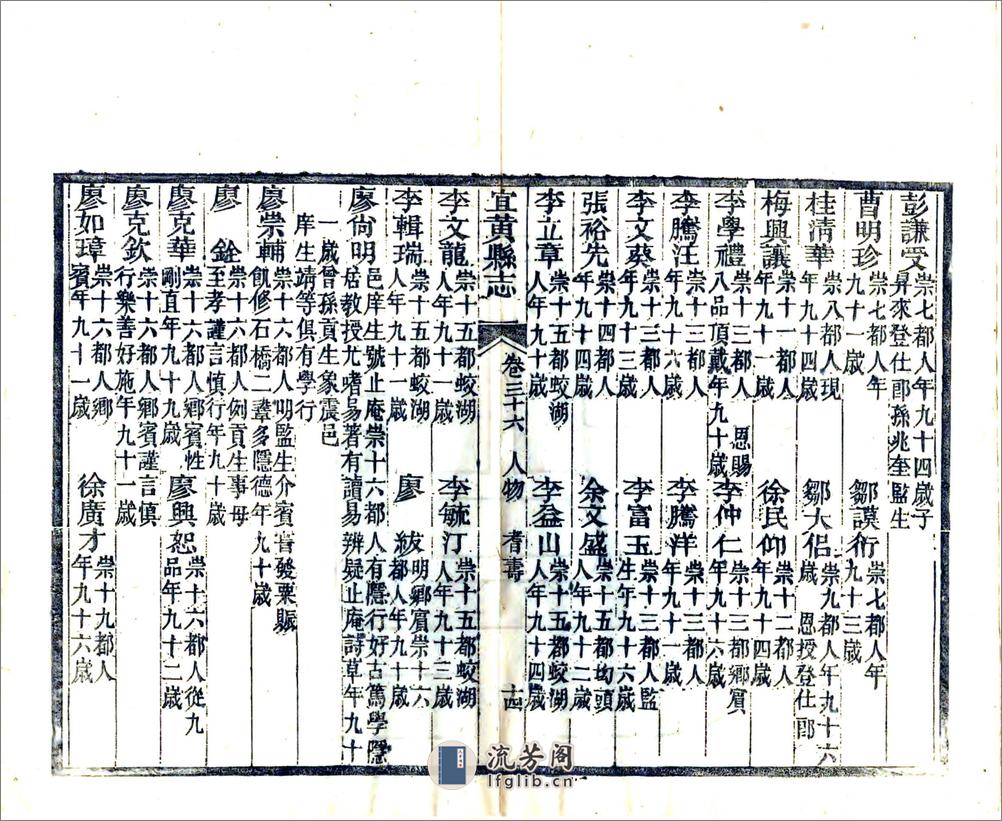 彭謙受崇七都人年九十四歲子昇來登仕郎孫兆奎監生
曹明珍崇七都人年九十一歲　鄒謨術崇七都人年九十三歲
桂清華崇八都人現年九十四歲　鄒大侶崇九都人年九十六歲　恩授登仕郎
梅興議崇十一都人年九十一歲　徐民仰崇十二都人年九十四歲
李學禮崇十三都人　恩賜八品頂戴年九十歲　李仲仁崇十三都鄉賓年九十六歲
李騰汪崇十三都人年九十六歲　李騰洋崇十三都人年九十一歲
李文葵崇十三都人年九十三歲　李富玉崇十三都人監生年九十六歲
張裕先崇十四都人年九十四歲　余文盛崇十五都坳頭人年九十二歲
李立章崇十五都蛟湖人年九十歲　李益山崇十五都蛟湖人年九十四歲
宜黃縣志　卷三十六　人物　耆壽　十四
李文龍崇十五都蛟湖人年九十一歲　李毓汀崇十五都蛟湖人年九十三歲
李輯瑞崇十五都蛟湖人年九十一歲　廖　紱明鄉賓崇十六都人年九十歲
廖尚明邑庠生號止庵崇十六都人有隱行好古篤學隱居教授尤嗜易著有讀易辨疑止庵詩草年九十
一歲曾孫貢生象震邑庠生靖等俱有學行
廖崇輔崇十六都人明監生介賓嘗發粟賑飢修石橋二壽多隱德年九十歲
廖　銓崇十六都人例貢生事母至孝謹言慎行年九十歲
廖克華崇十六都人鄉賓性剛直年九十九歲　廖興恕崇十六都人從九品年九十二歲
廖克欽崇十六都人鄉賓謹言慎行樂善好施年九十一歲
廖如璋崇十六都人鄉賓年九十一歲　徐廣才崇十九都人年九十六歲
流芳阁
lfglib.cn